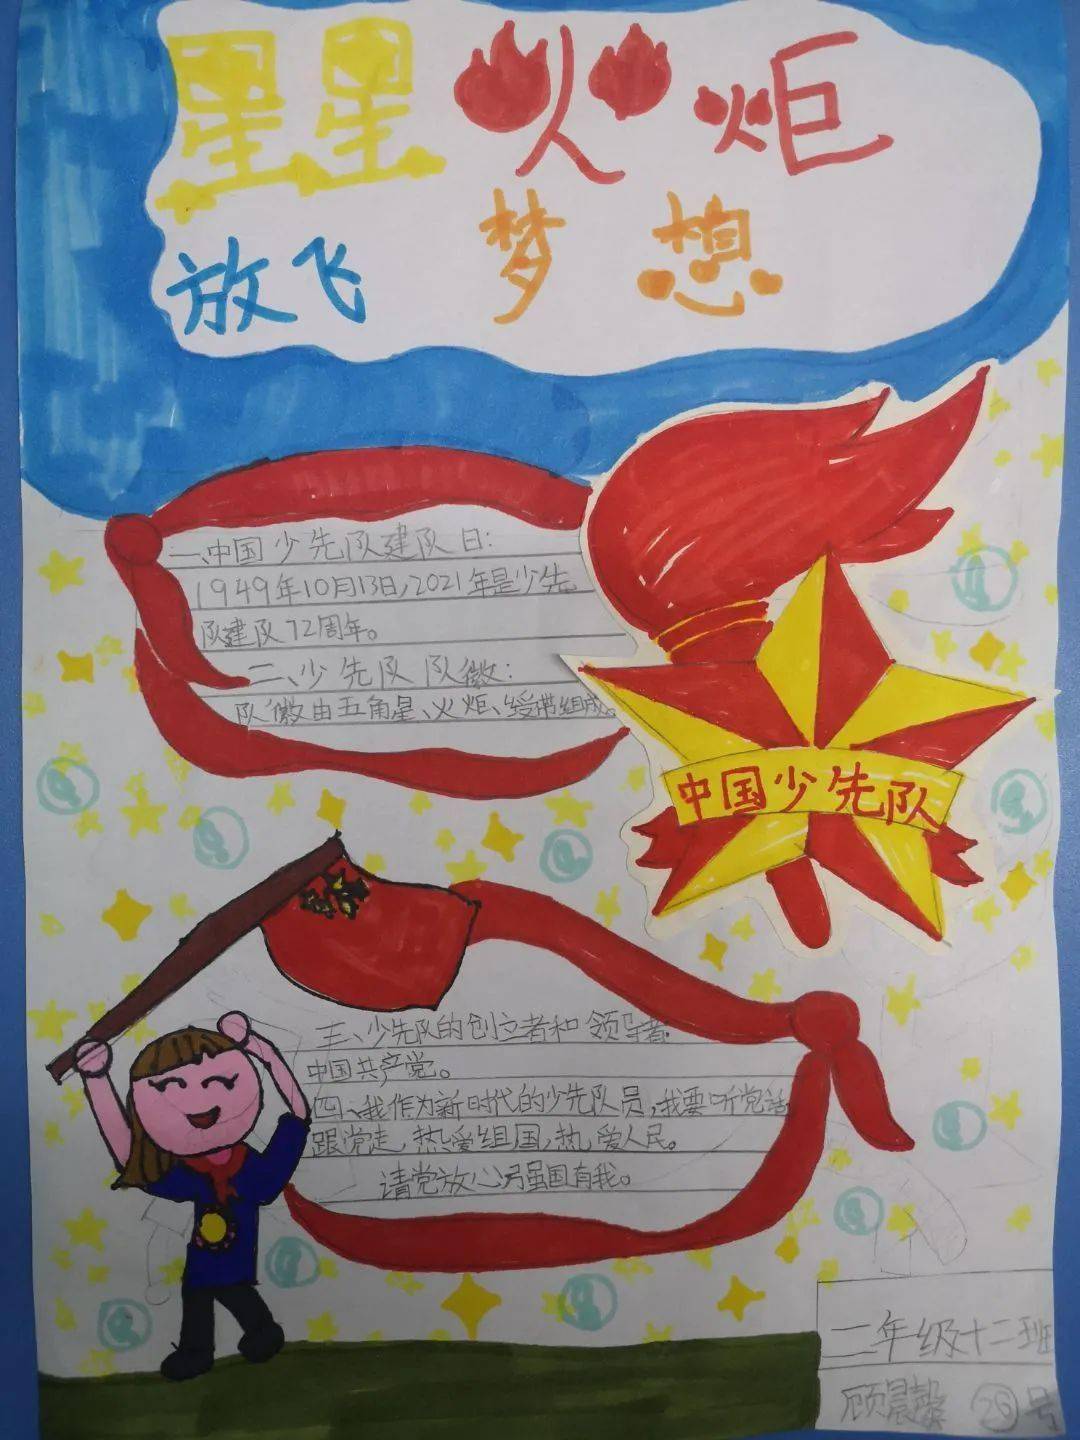 星星火炬
放飞梦想
一、中国少先队建队日:
1949年10月13日,2021年是少先
队建队72周年。
二、少先队队徽:
队徽由五角星、火炬、绶带组成。
中国少先队
三、少先队的创立者和领导者:
中国共产党。
四、我作为新时代的少先队员,我要听党话
跟党走,热爱组国,热爱人民。
请党放心,强国有我。
二年级十二班
顾晨馨 26号